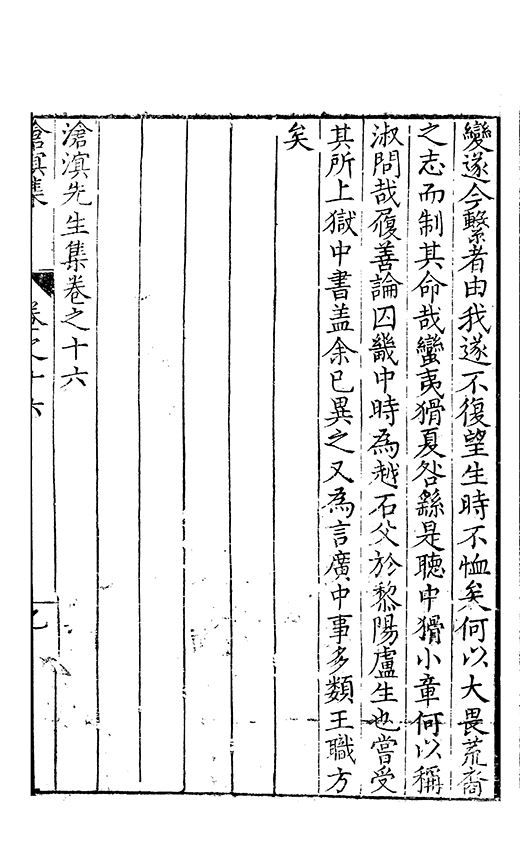 變遂今繫者由我遂不復望生時不恤矣何以大畏荒裔
之志而制其命哉蠻夷猾夏咎繇是聽中猾小章何以稱
淑問哉履善論囚畿中時為越石父於黎陽盧生也嘗受
其所上獄中書盖余已異之又為言廣中事多類王職方
矣
滄溟先生集卷之十六
滄溟集
卷之十六